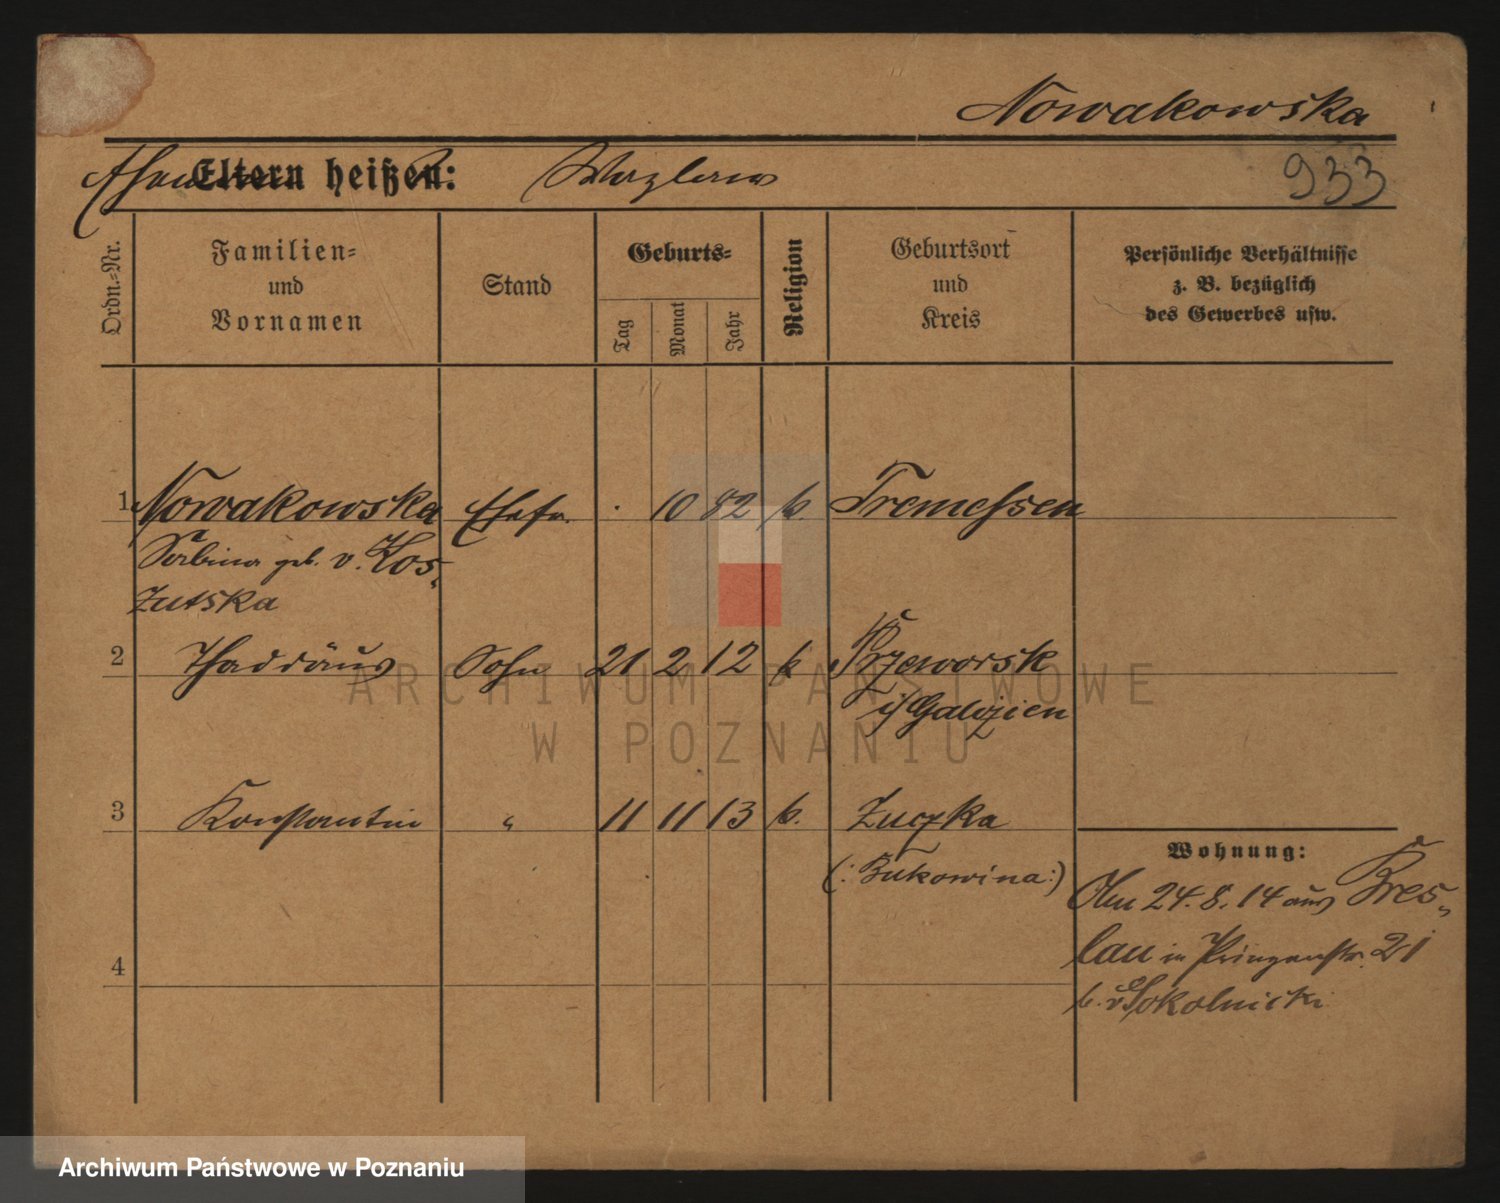 Nowakowska
Eltern heißen: Wazlaw
933
Ordn.-Nr.
Familien-
und
Vornamen
Stand
Geburts-
Tag
Monat
Jahr
Religion
Geburtsort
und
Kreis
Persönliche Verhältnisse
z. B. bezüglich
des Gewerbes usw.
1 Nowakowska Ehefr. 10 82 k. Tremessen
Sabina geb. v. Kos-
zutska
2 Thaddäus Sohn 21 2 12 k Przeworsk
i/Galizien
3 Konstantin " 11 11 13 k. Zuczka
(: Bukowina :)
Wohnung:
Am 24.8.14 aus Bres-
lau in Prinzenstr. 21
b. v. Sokolnicki
4
ARCHIWUM PAŃSTWOWE
W POZNANIU
Archiwum Państwowe w Poznaniu